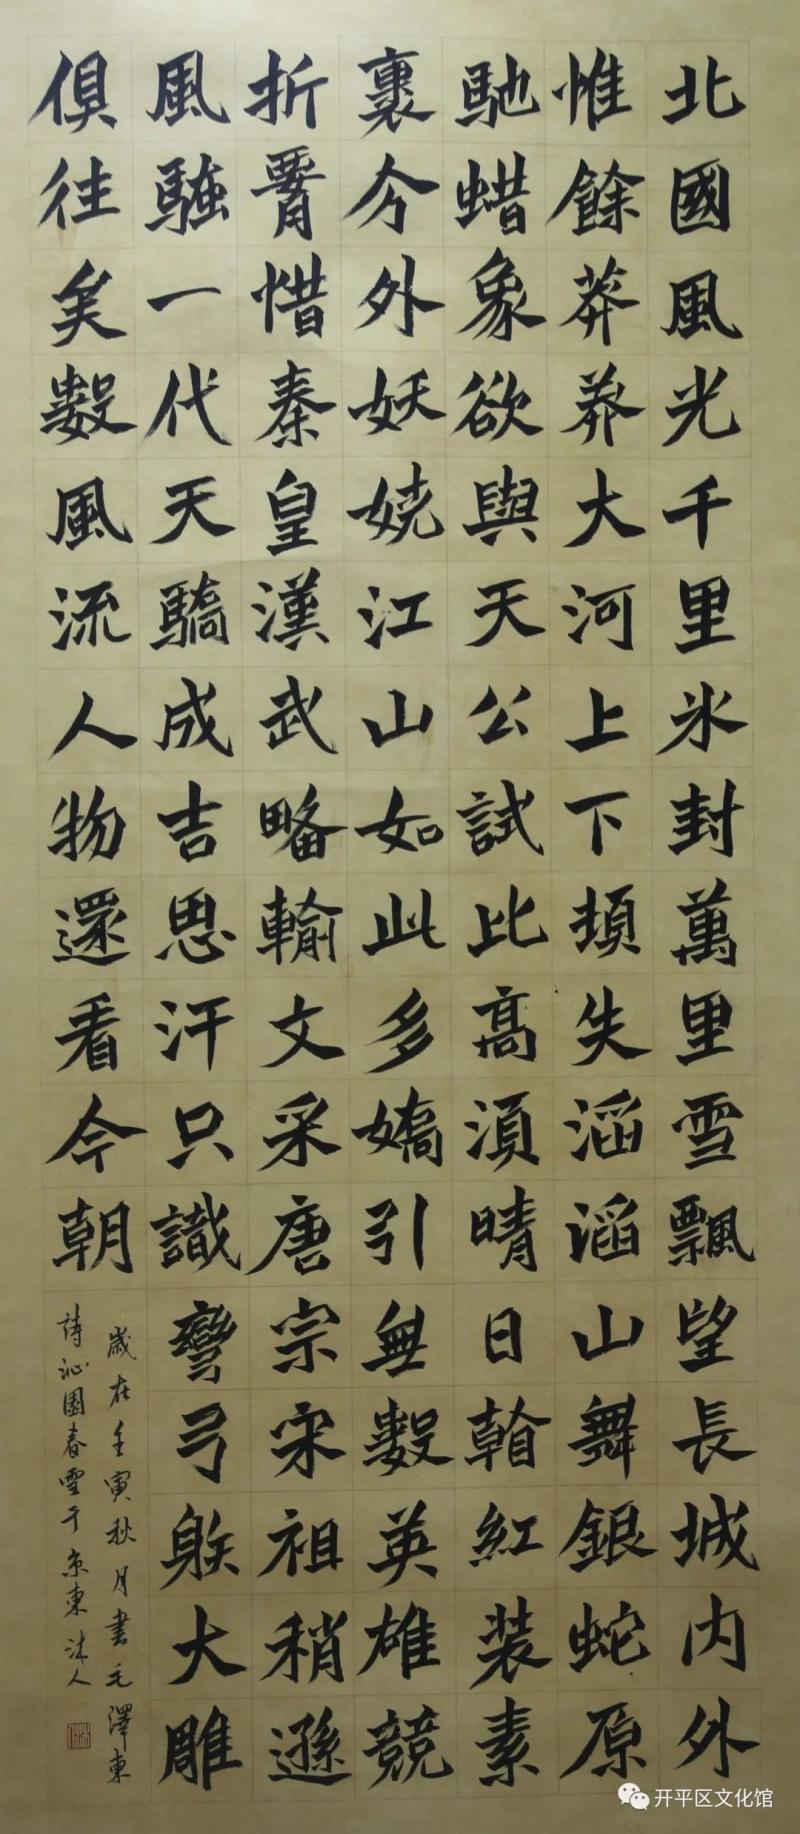 北國風光千里氷封萬里雪飄望長城内外
惟餘莽莽大河上下頓失滔滔山舞銀蛇原
馳蜡象欲與天公試比高須晴日看紅装素
裹分外妖嬈江山如此多嬌引無數英雄競
折腰惜秦皇漢武略輸文采唐宗宋祖稍遜
風騷一代天驕成吉思汗只識彎弓射大雕
俱往矣數風流人物還看今朝
歲在壬寅秋月書毛澤東
詩沁園春雪于京東人
开平区文化馆